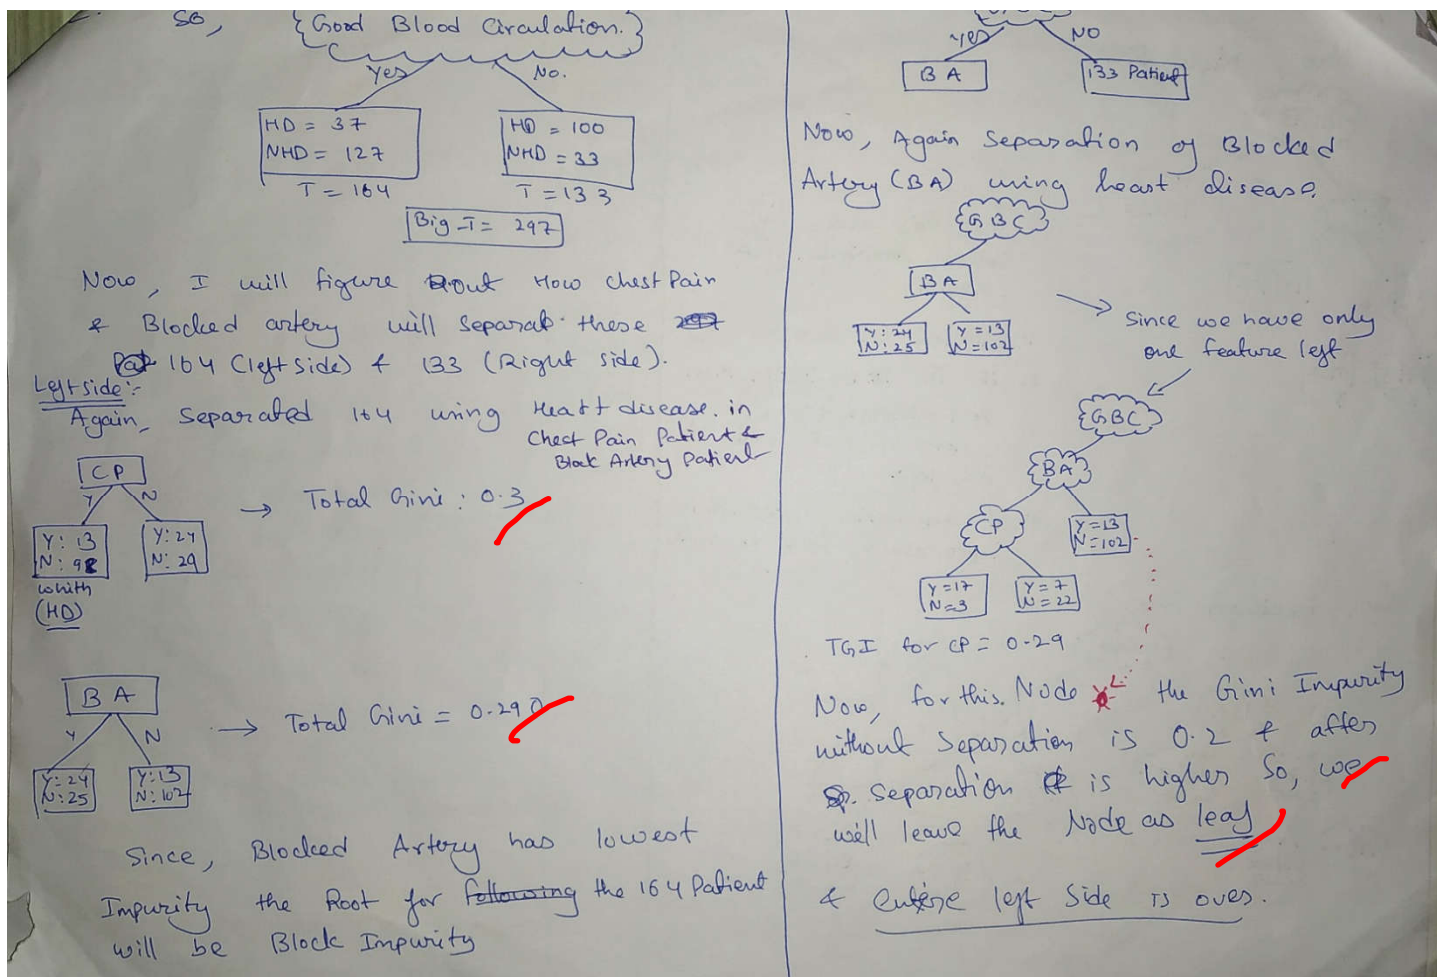 So, Good Blood Circulation.
Yes No.
HD = 37
NHD = 127
T = 164
HD = 100
NHD = 33
T = 133
Big-T = 297
Now, I will figure out How chest Pain
& Blocked artery will Separat these
164 (left side) & 133 (Right side).
Left side:-
Again, Separated 164 using Heart disease. in
Chest Pain Patient &
Block Artery Patient
CP
Y N
Y: 13
N: 98
Y: 24
N: 29
whith
(HD)
→ Total Gini: 0.3
BA
Y N
Y: 24
N: 25
Y: 13
N: 102
→ Total Gini = 0.290
Since, Blocked Artery has lowest
Impurity the Root for following the 164 Patient
will be Block Impurity
Yes NO
BA
133 Patient
Now, Again Separation of Blocked
Artery (BA) using heart disease.
GBC
BA
Y: 24
N: 25
Y = 13
N = 102
→ Since we have only
one feature left
GBC
BA
CP
Y = 13
N = 102
Y = 17
N = 3
Y = 7
N = 22
TGI for CP = 0.29
Now, for this Node the Gini Impurity
without Separation is 0.2 & after
Separation is higher So, we
will leave the Node as leaf
& entire left Side is over.